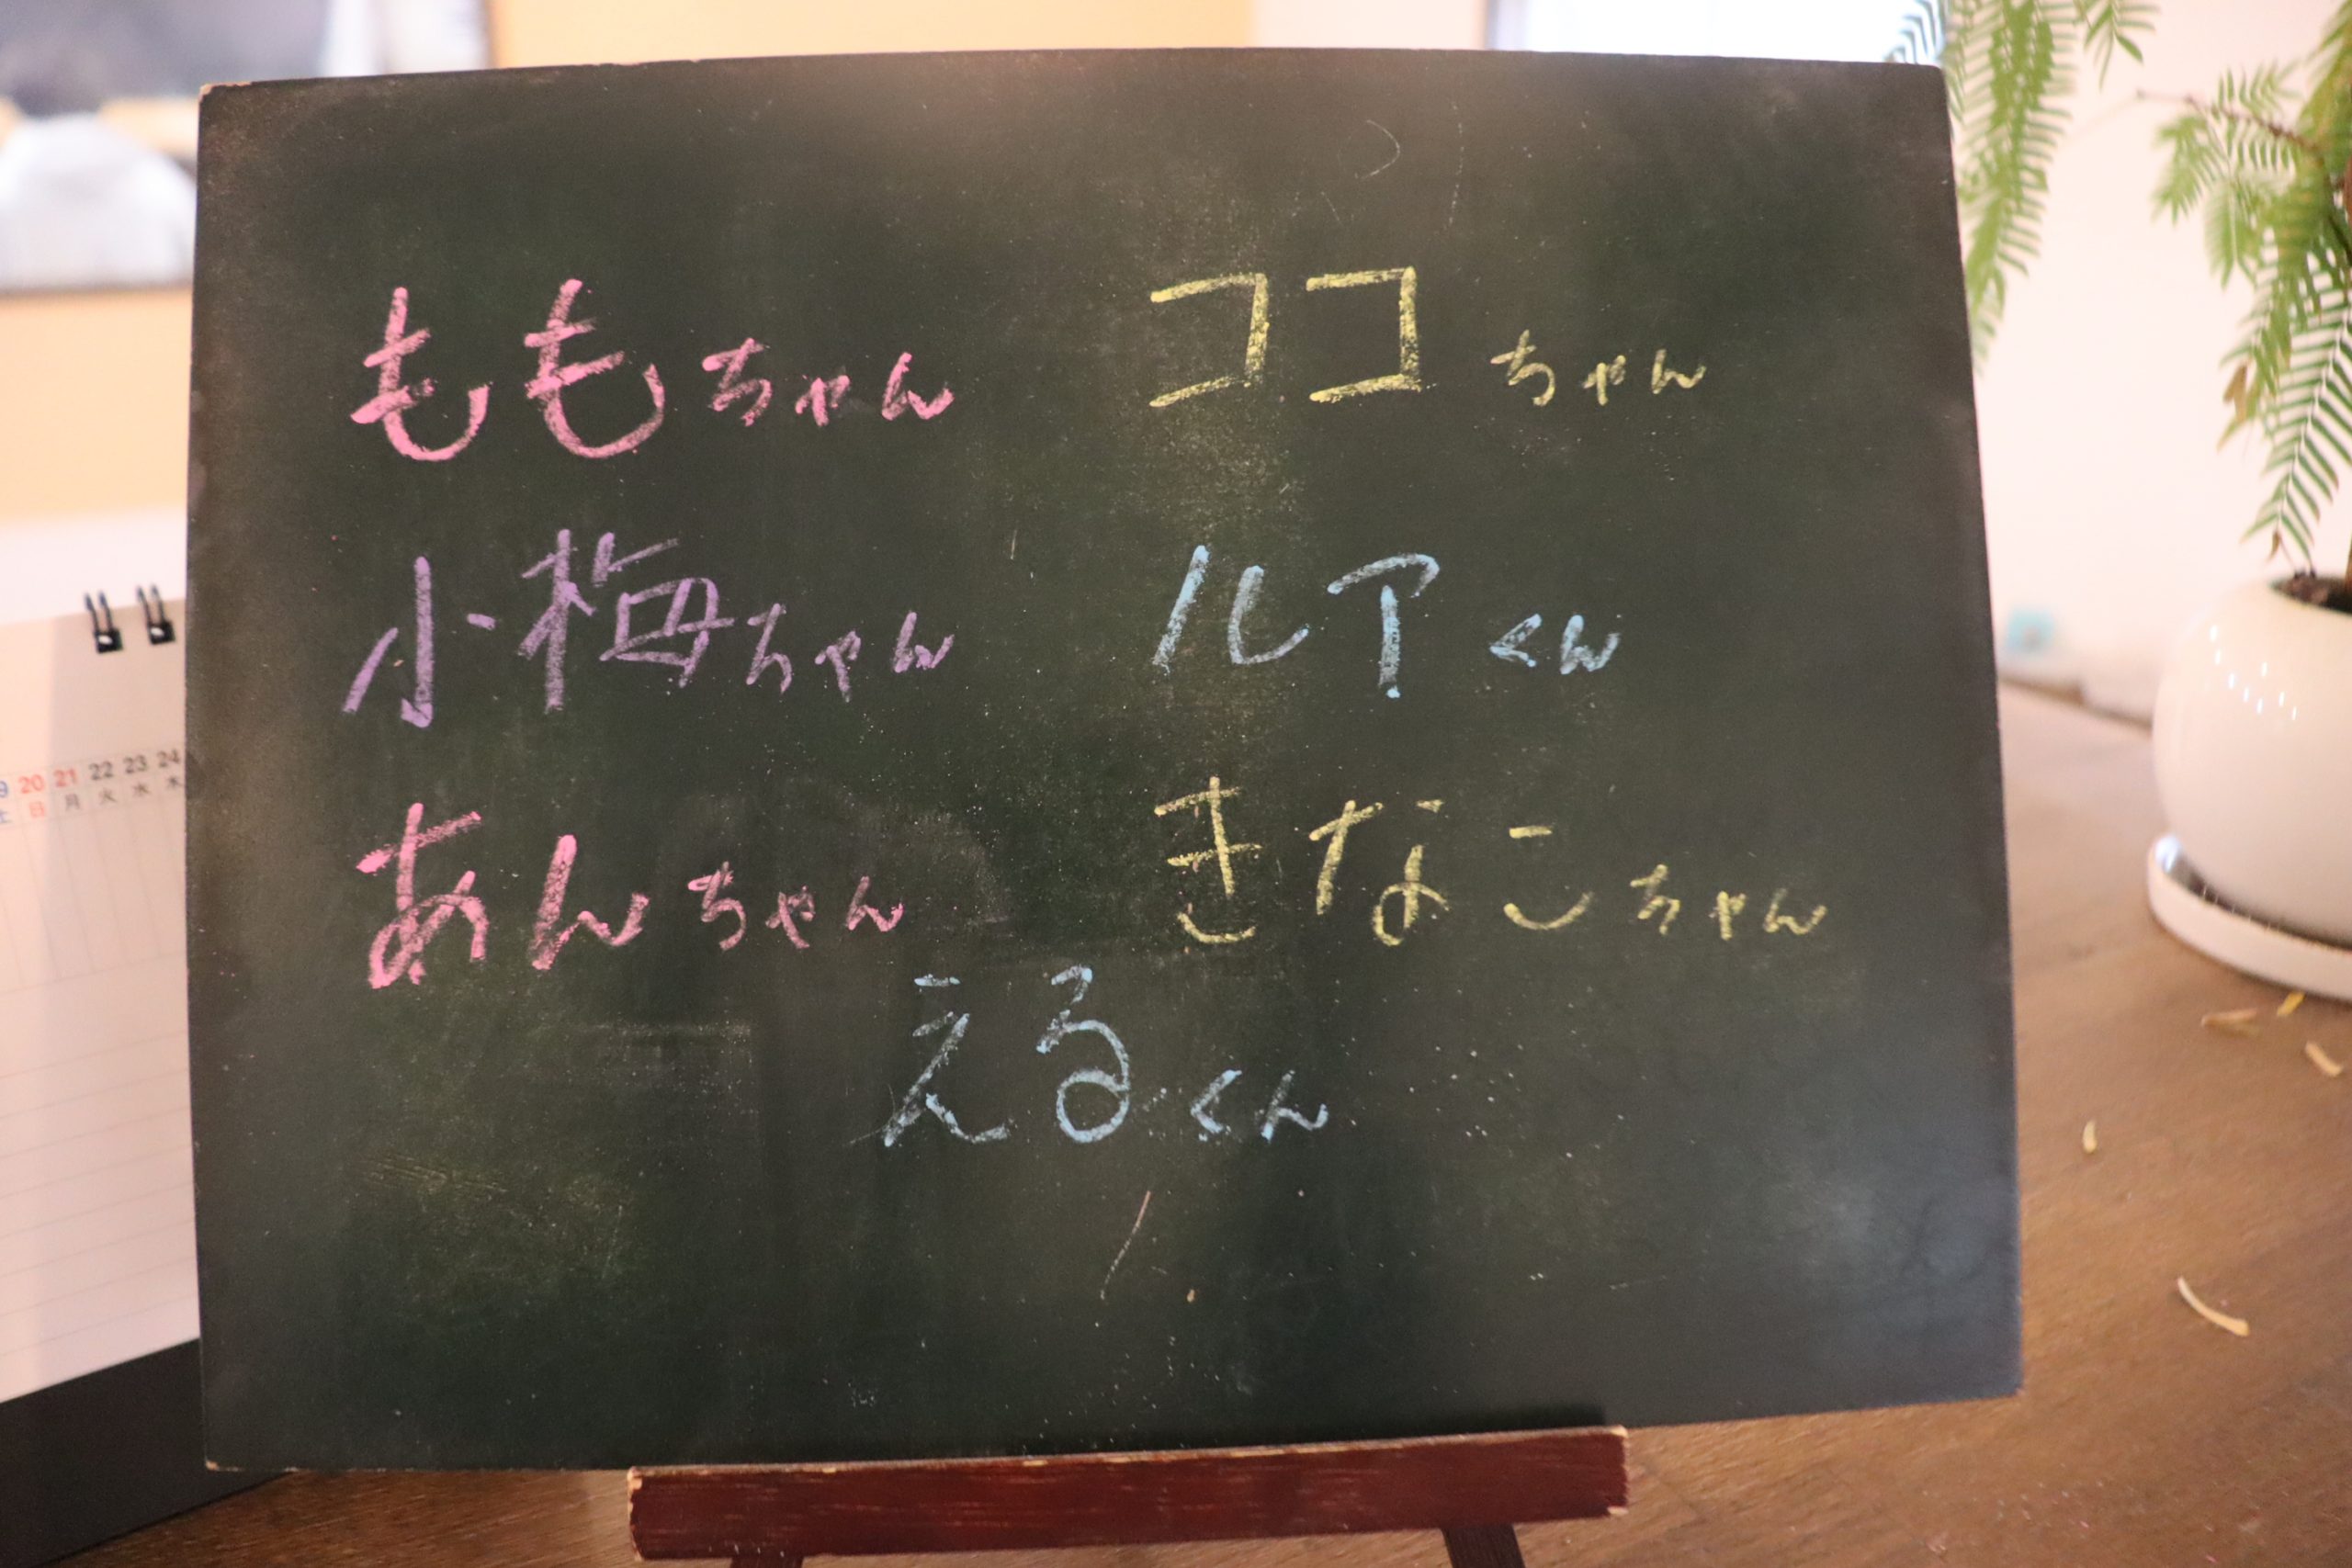 ももちゃん ココちゃん
小梅ちゃん ルアくん
あんちゃん きなこちゃん
えるくん
20 21 22 23 24
日 月 火 水 木